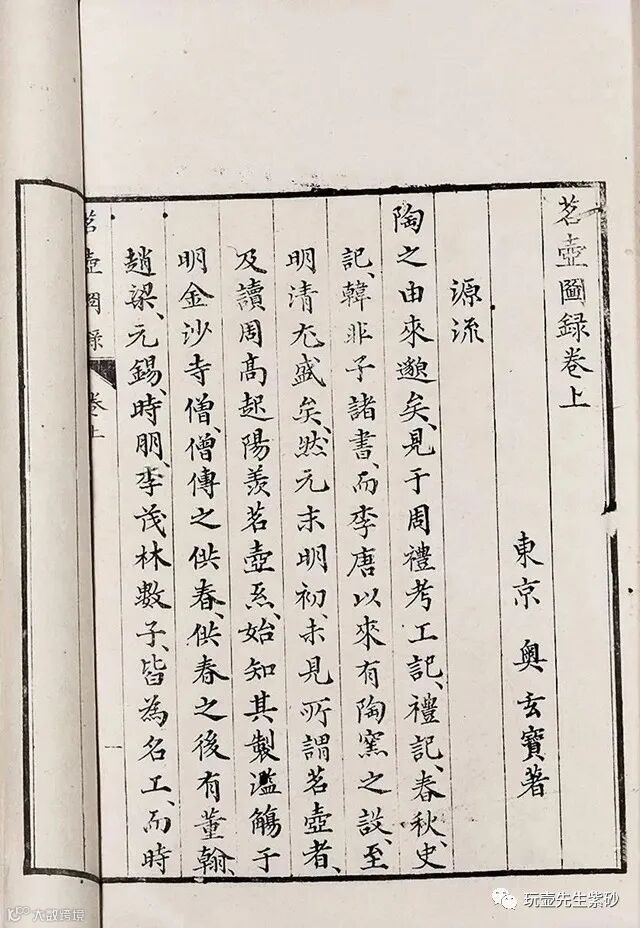 茗壺圖録卷上
東京 奥玄寶著
源流
陶之由來邈矣、見于周禮考工記、禮記、春秋、史
記、韓非子諸書、而李唐以來有陶窯之談、至
明清尤盛矣、然元末明初、未見所謂茗壺者、
及讀周高起陽羨茗壺系、始知其製濫觴于
明金沙寺僧、僧傳之供春、供春之後有董翰、
趙梁、元錫、時朋、李茂林數子、皆為名工、而時
茗壺圖録 卷上
玩壶先生紫砂
大数跨境